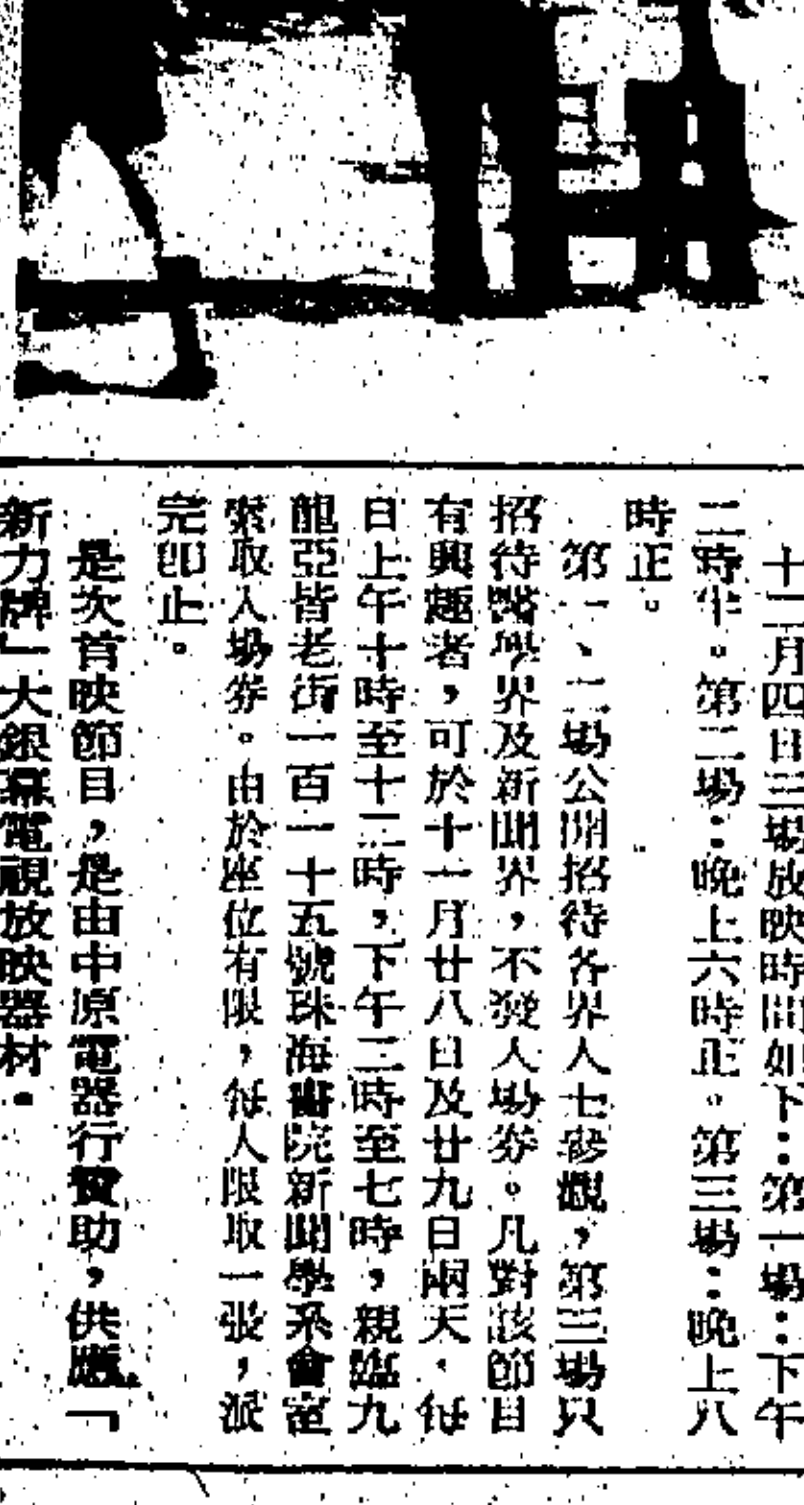 十二月四日三場放映時間如下：第一場：下午
二時半。第二場：晚上六時正。第三場：晚上八
時正。
第一、二場公開招待各界人士參觀，第三場只
招待醫學界及新聞界，不發入場券。凡對該節目
有興趣者，可於十一月廿八日及廿九日兩天，每
日上午十時至十二時，下午二時至七時，親臨九
龍亞皆老街一百一十五號珠海書院新聞學系會室
索取入場券。由於座位有限，每人限取一張，派
完即止。
是次首映節目，是由中原電器行贊助，供應「
新力牌」大銀幕電視放映器材。